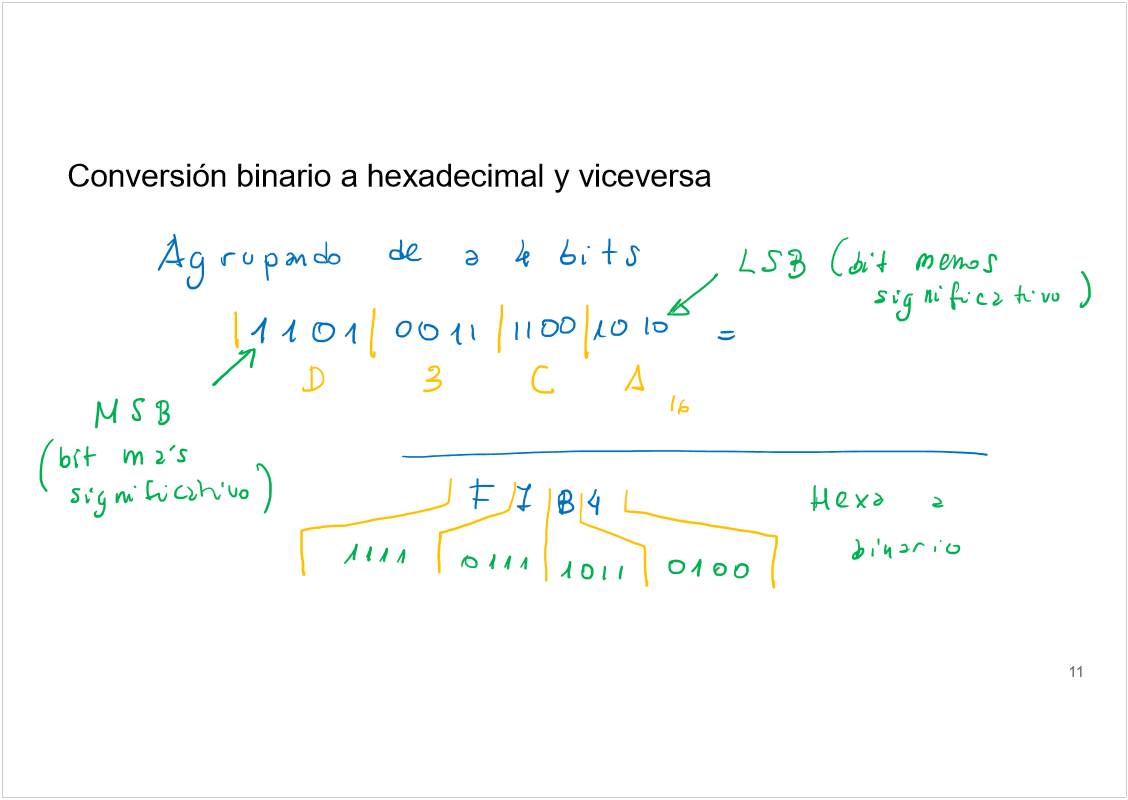 Conversión binario a hexadecimal y viceversa
Agrupando de a 4 bits
LSB (bit menos
significativo)
1101 | 0011 | 1100 | 1010 =
D 3 C A 16
MSB
(bit más
significativo)
F 7 B 4
Hexa a
binario
1111 0111 1011 0100
11